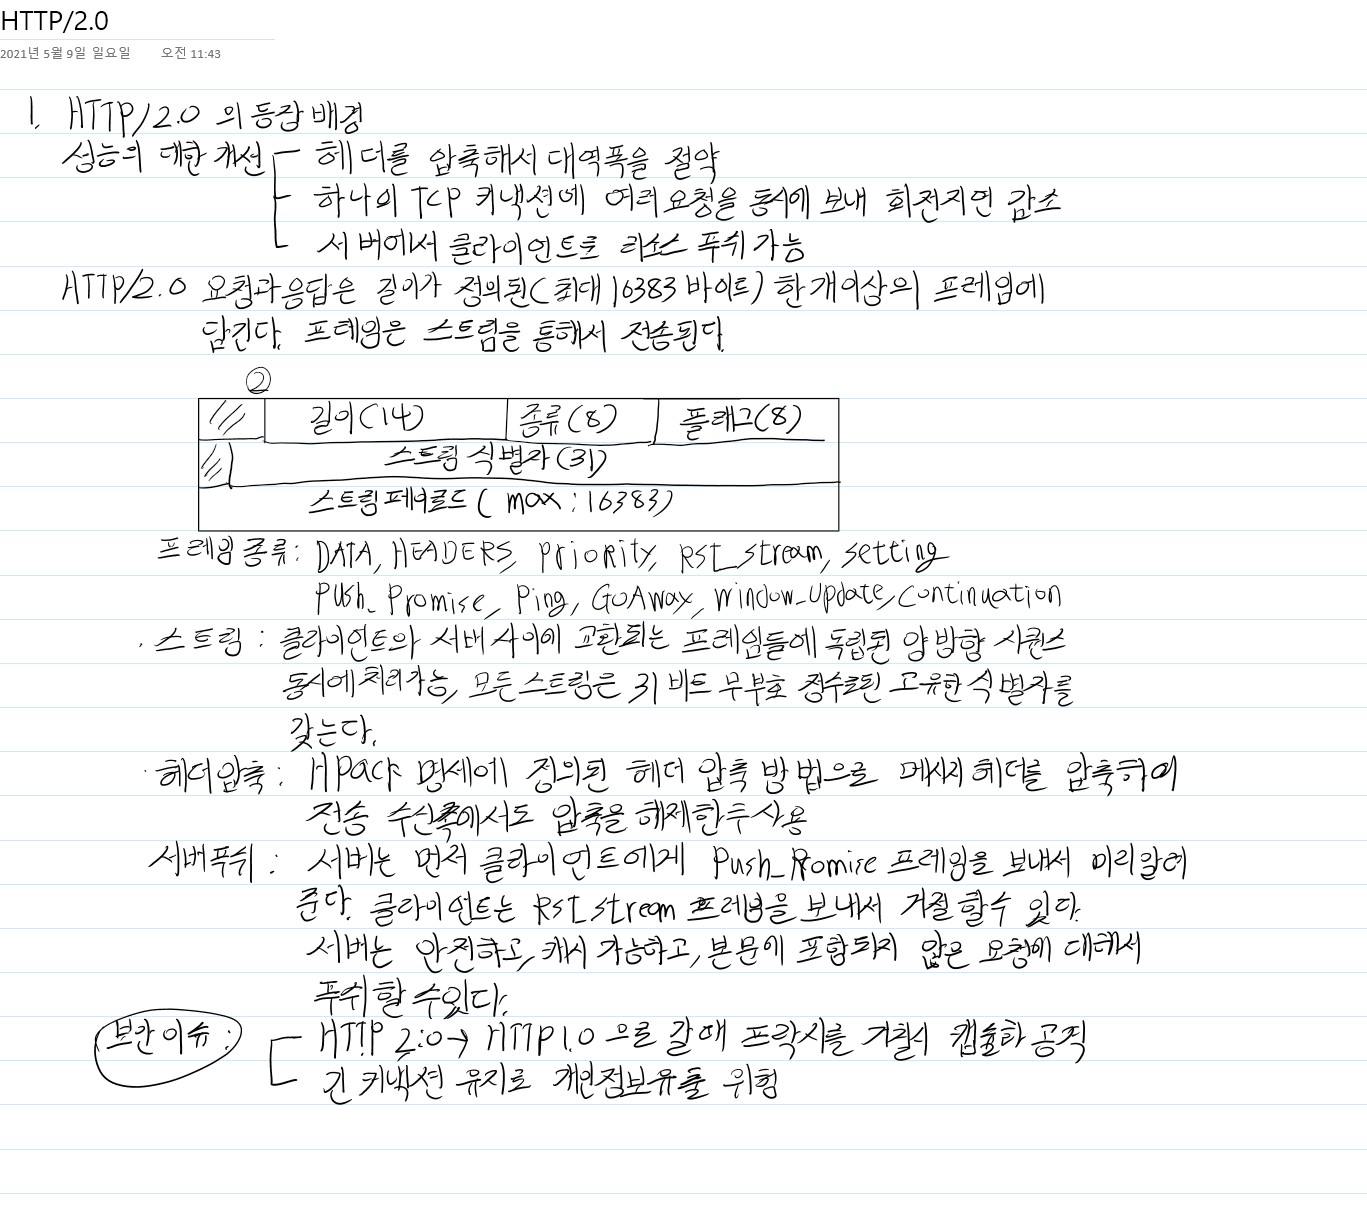 HTTP/2.0
2021년 5월 9일 일요일 오전 11:43
1. HTTP/2.0 의 등장 배경
성능의 대한 개선 - 헤더를 압축해서 대역폭을 절약
- 하나의 TCP 커넥션에 여러 요청을 동시에 보내 회전지연 감소
- 서버에서 클라이언트로 리소스 푸쉬 가능
HTTP/2.0 요청과 응답은 길이가 정의된(최대 16383 바이트) 한 개이상의 프레임에
담긴다. 프레임은 스트림을 통해서 전송된다.
②
길이(14) 종류(8) 플래그(8)
스트림 식별자(31)
스트림 페이로드( max : 16383)
프레임 종류: DATA, HEADERS, Priority, RST_stream, setting
Push_Promise, Ping, GoAwax, window_update, continuation
· 스트림 : 클라이언트와 서버 사이에 교환되는 프레임들에 독립된 양방향 시퀀스
동시에 처리가능, 모든 스트림은 31 비트 무부호 정수로된 고유한 식별자를
갖는다.
· 헤더압축 : HPack 명세에 정의된 헤더 압축 방법으로 메시지 헤더를 압축하여
전송 수신쪽에서도 압축을 해제한후 사용
서버푸쉬 : 서버는 먼저 클라이언트에게 Push_Promise 프레임을 보내서 미리알려
준다. 클라이언트는 Rst_stream 프레임을 보내서 거절 할수 있다.
서버는 안전하고, 캐시 가능하고, 본문에 포함되지 않은 요청에 대해서
푸쉬할 수있다.
보안 이슈 : HTTP 2.0 → HTTP 1.0 으로 갈때 프락시를 거칠시 캡슐화 공직
긴 커넥션 유지로 개인정보유출 위험